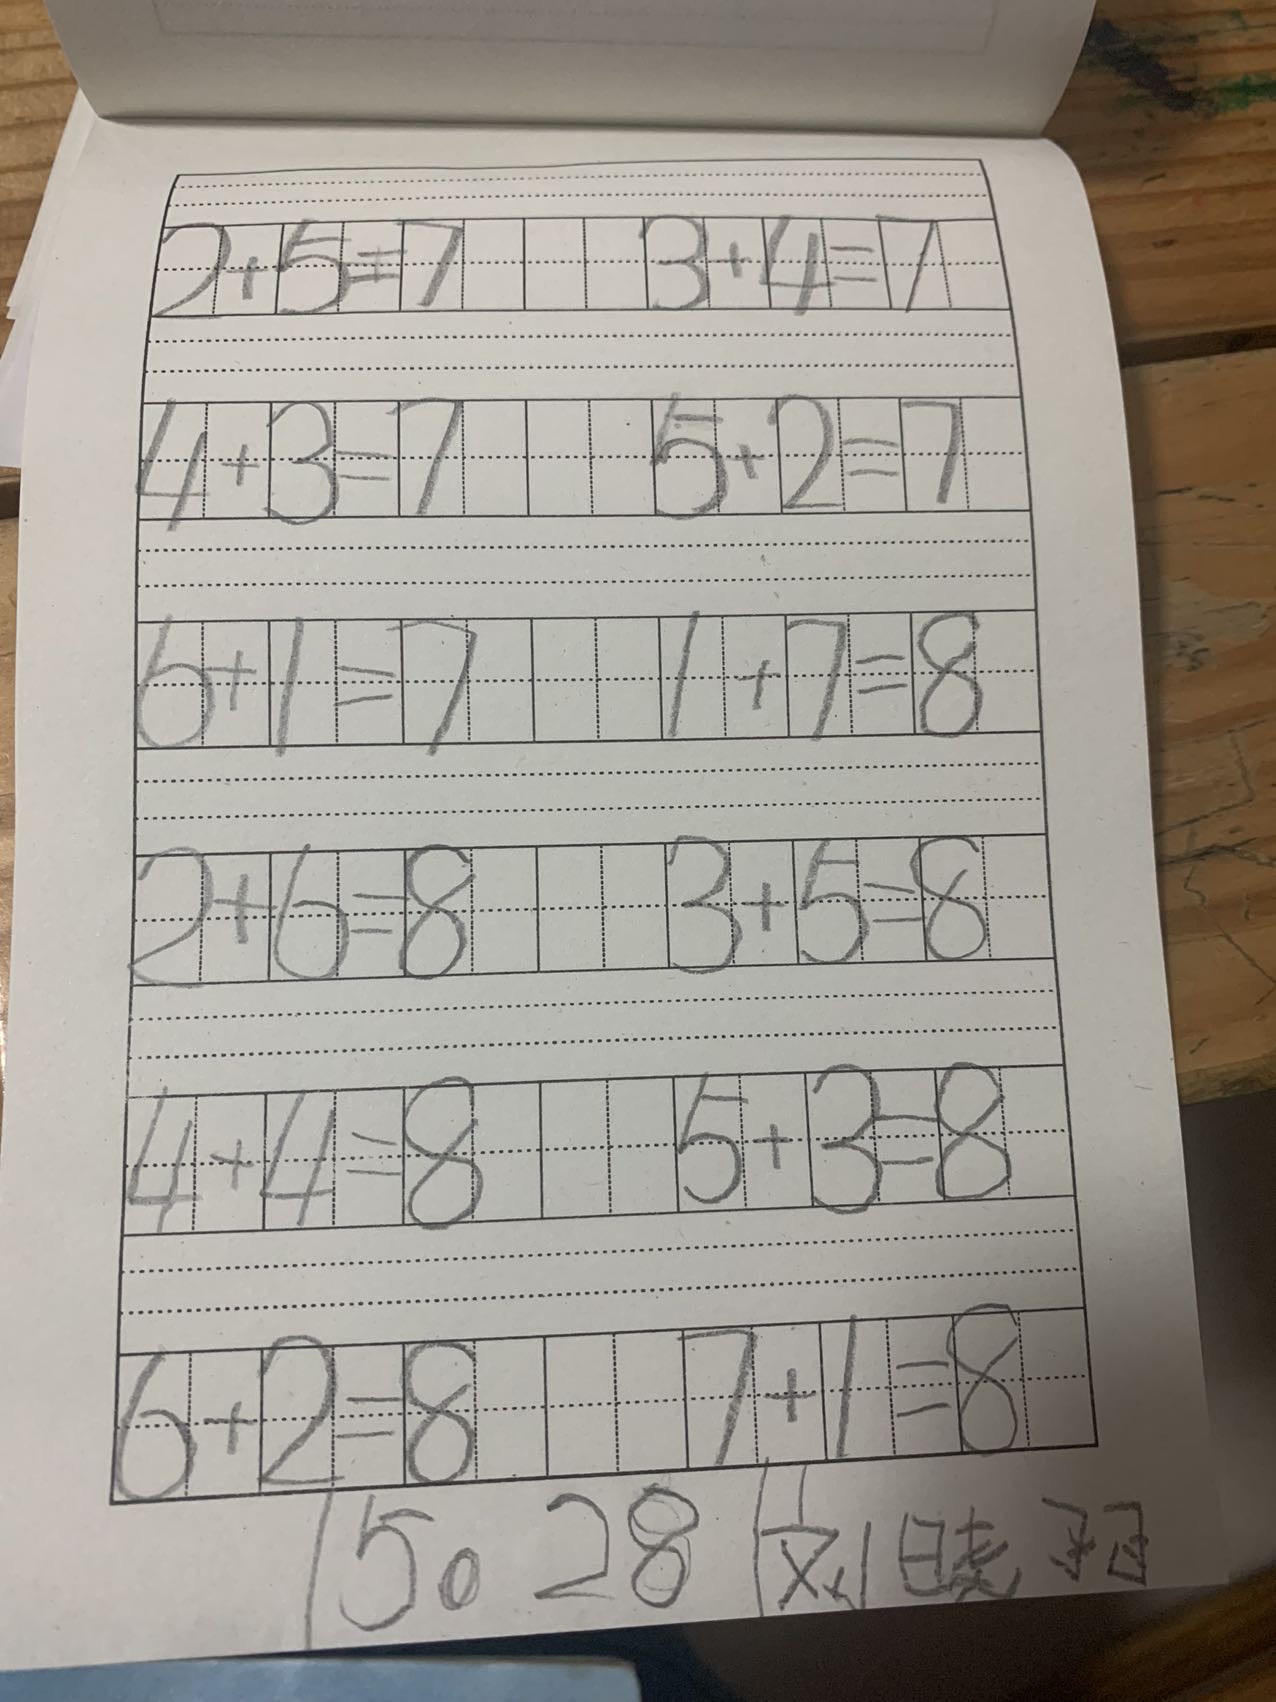 2+5=7 3+4=7
4+3=7 5+2=7
6+1=7 1+7=8
2+6=8 3+5=8
4+4=8 5+3=8
6+2=8 7+1=8
15。28 刘晓